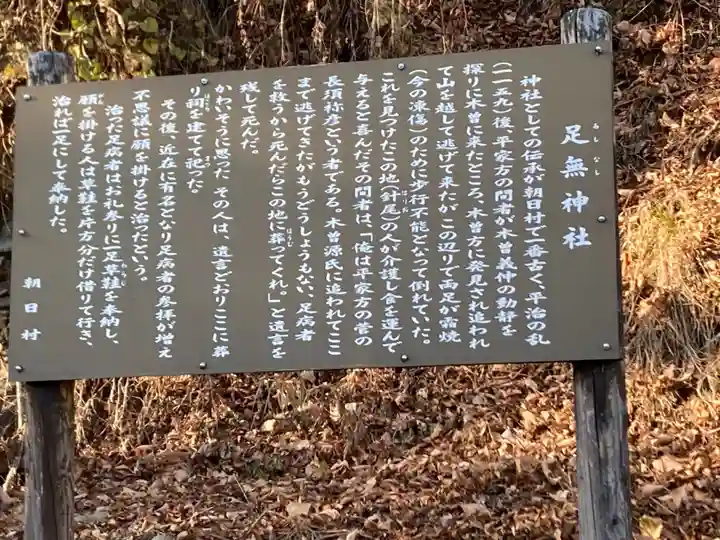 足無神社
あしなし
神社としての伝承が朝日村で一番古く、平治の乱
(一一五九)後、平家方の間者が木曽義仲の動静を
探りに木曽に来たところ、木曽方に発見され追われ
て山を越して逃げて来たが、この辺りで両足が霜焼
(今の凍傷)のために歩行不能となって倒れていた。
これを見つけたこの地(針尾)の人が介護し食を運んで
はりお
与えると喜んだその間者は、「俺は平家方の菅の
長須祢彦という者である。木曽源氏に追われてここ
まで逃げてきたがもうどうしょうもない、足病者
を救うから死んだらこの地に葬ってくれ。」と遺言を
ほうむ
残して死んだ。
かわいそうに思ったその人は、遺言どおりここに葬
り祠を建てて祀った
その後、近在に有名となり足病者の参拝が増え
不思議に願を掛けると治ったという。
治った足病者はお礼参りに二足草鞋を奉納し、
願を掛ける人は草鞋を片方だけ借りて行き、
治れば一足にして奉納した。
朝日村